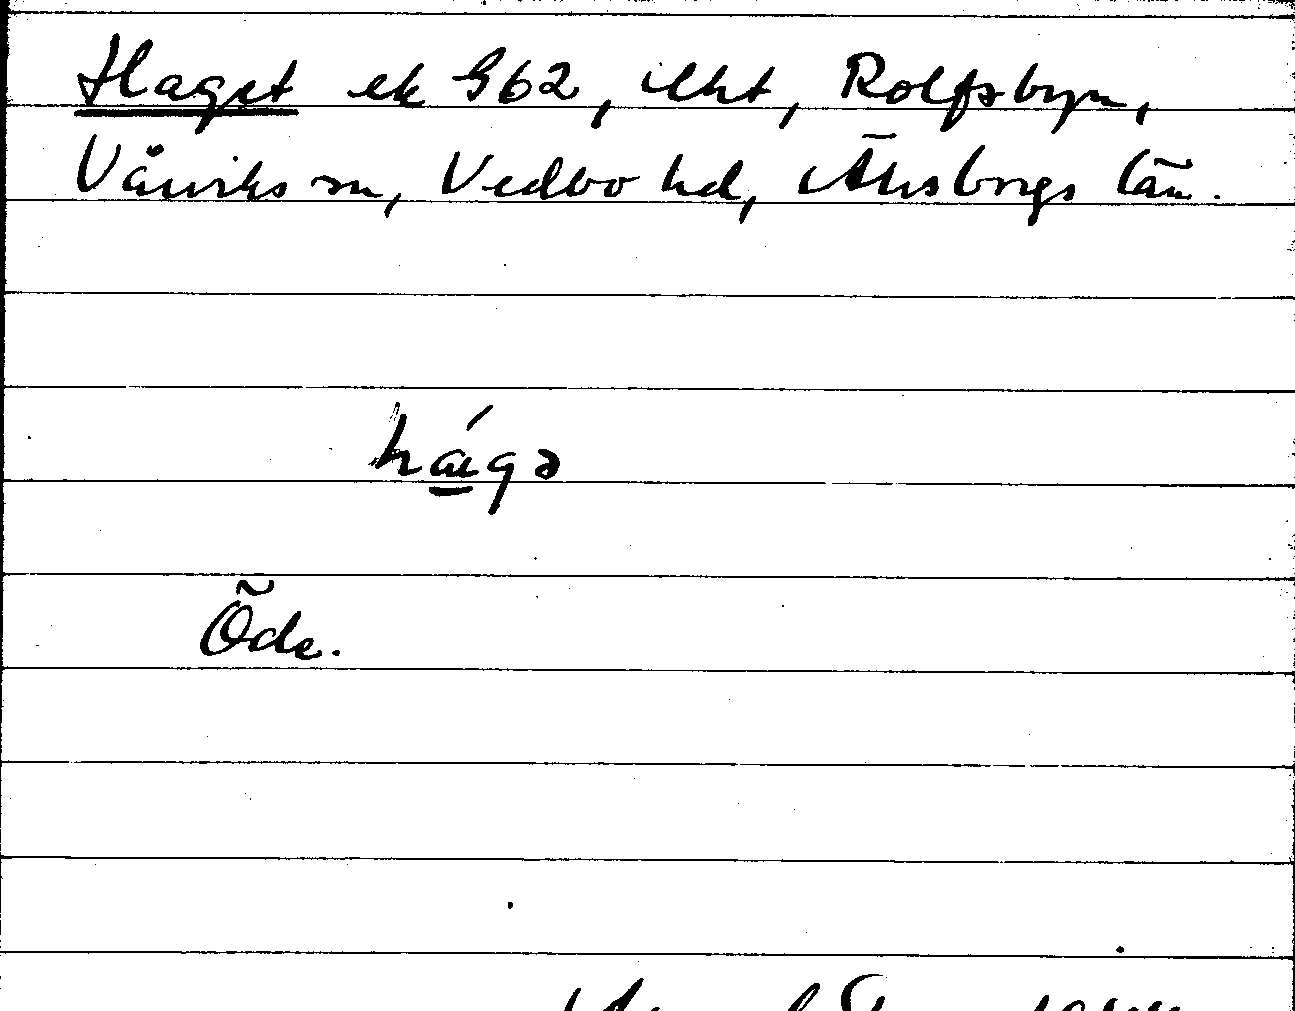 Haget ek 962, lht, Rolfsbyn,
Vårviks sn, Vedbo hd, Älvsborgs län.
hágə
Öde.